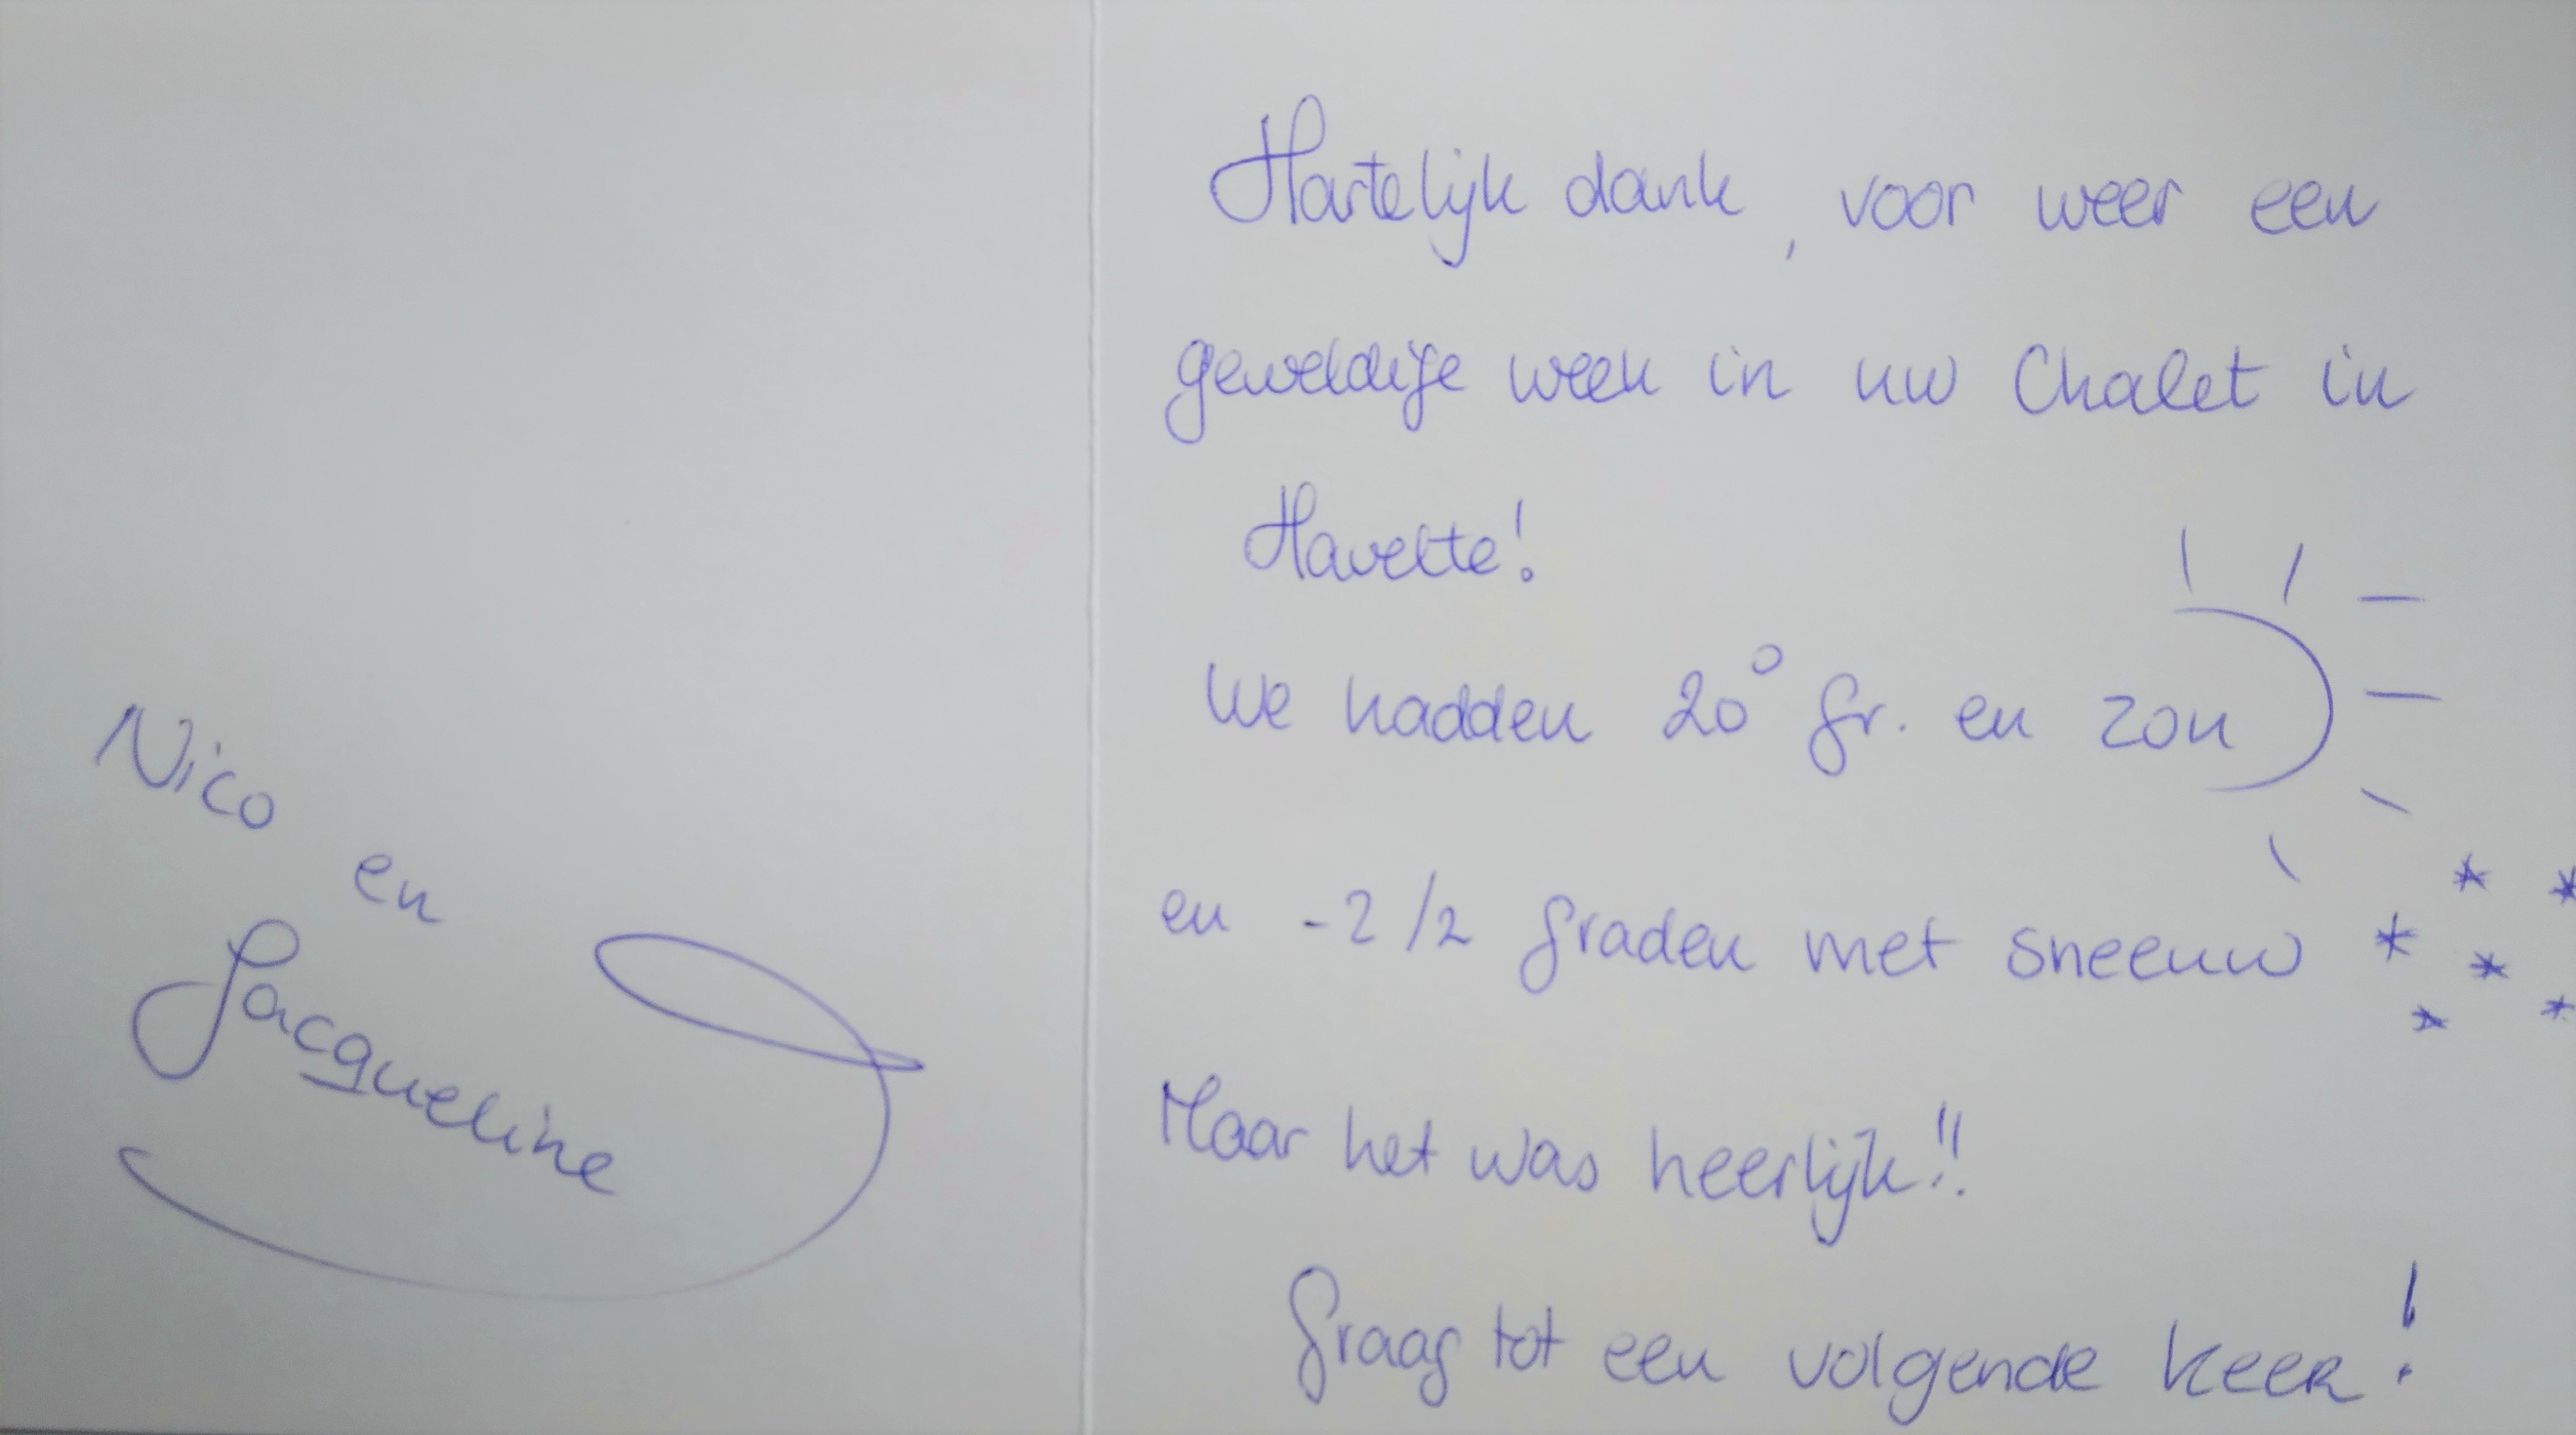 Nico
en
Jacqueline
Hartelijk dank, voor weer een
geweldige week in uw Chalet in
Havelte!
We hadden 20° gr. en zon
en -2 1/2 graden met sneeuw
Maar het was heerlijk!!
Graag tot een volgende keer!